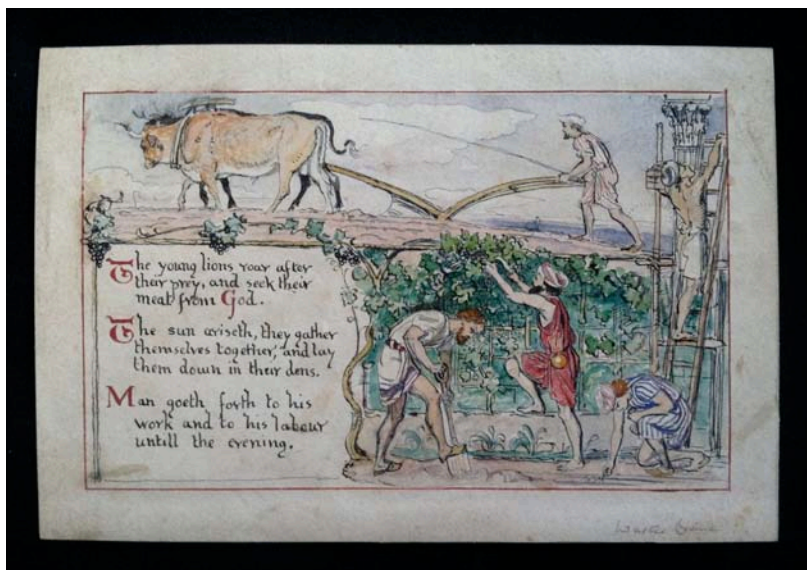 The young lions roar after
their prey, and seek their
meat from God.
The sun ariseth, they gather
themselves together, and lay
them down in their dens.
Man goeth forth to his
work and to his labour
untill the evening.